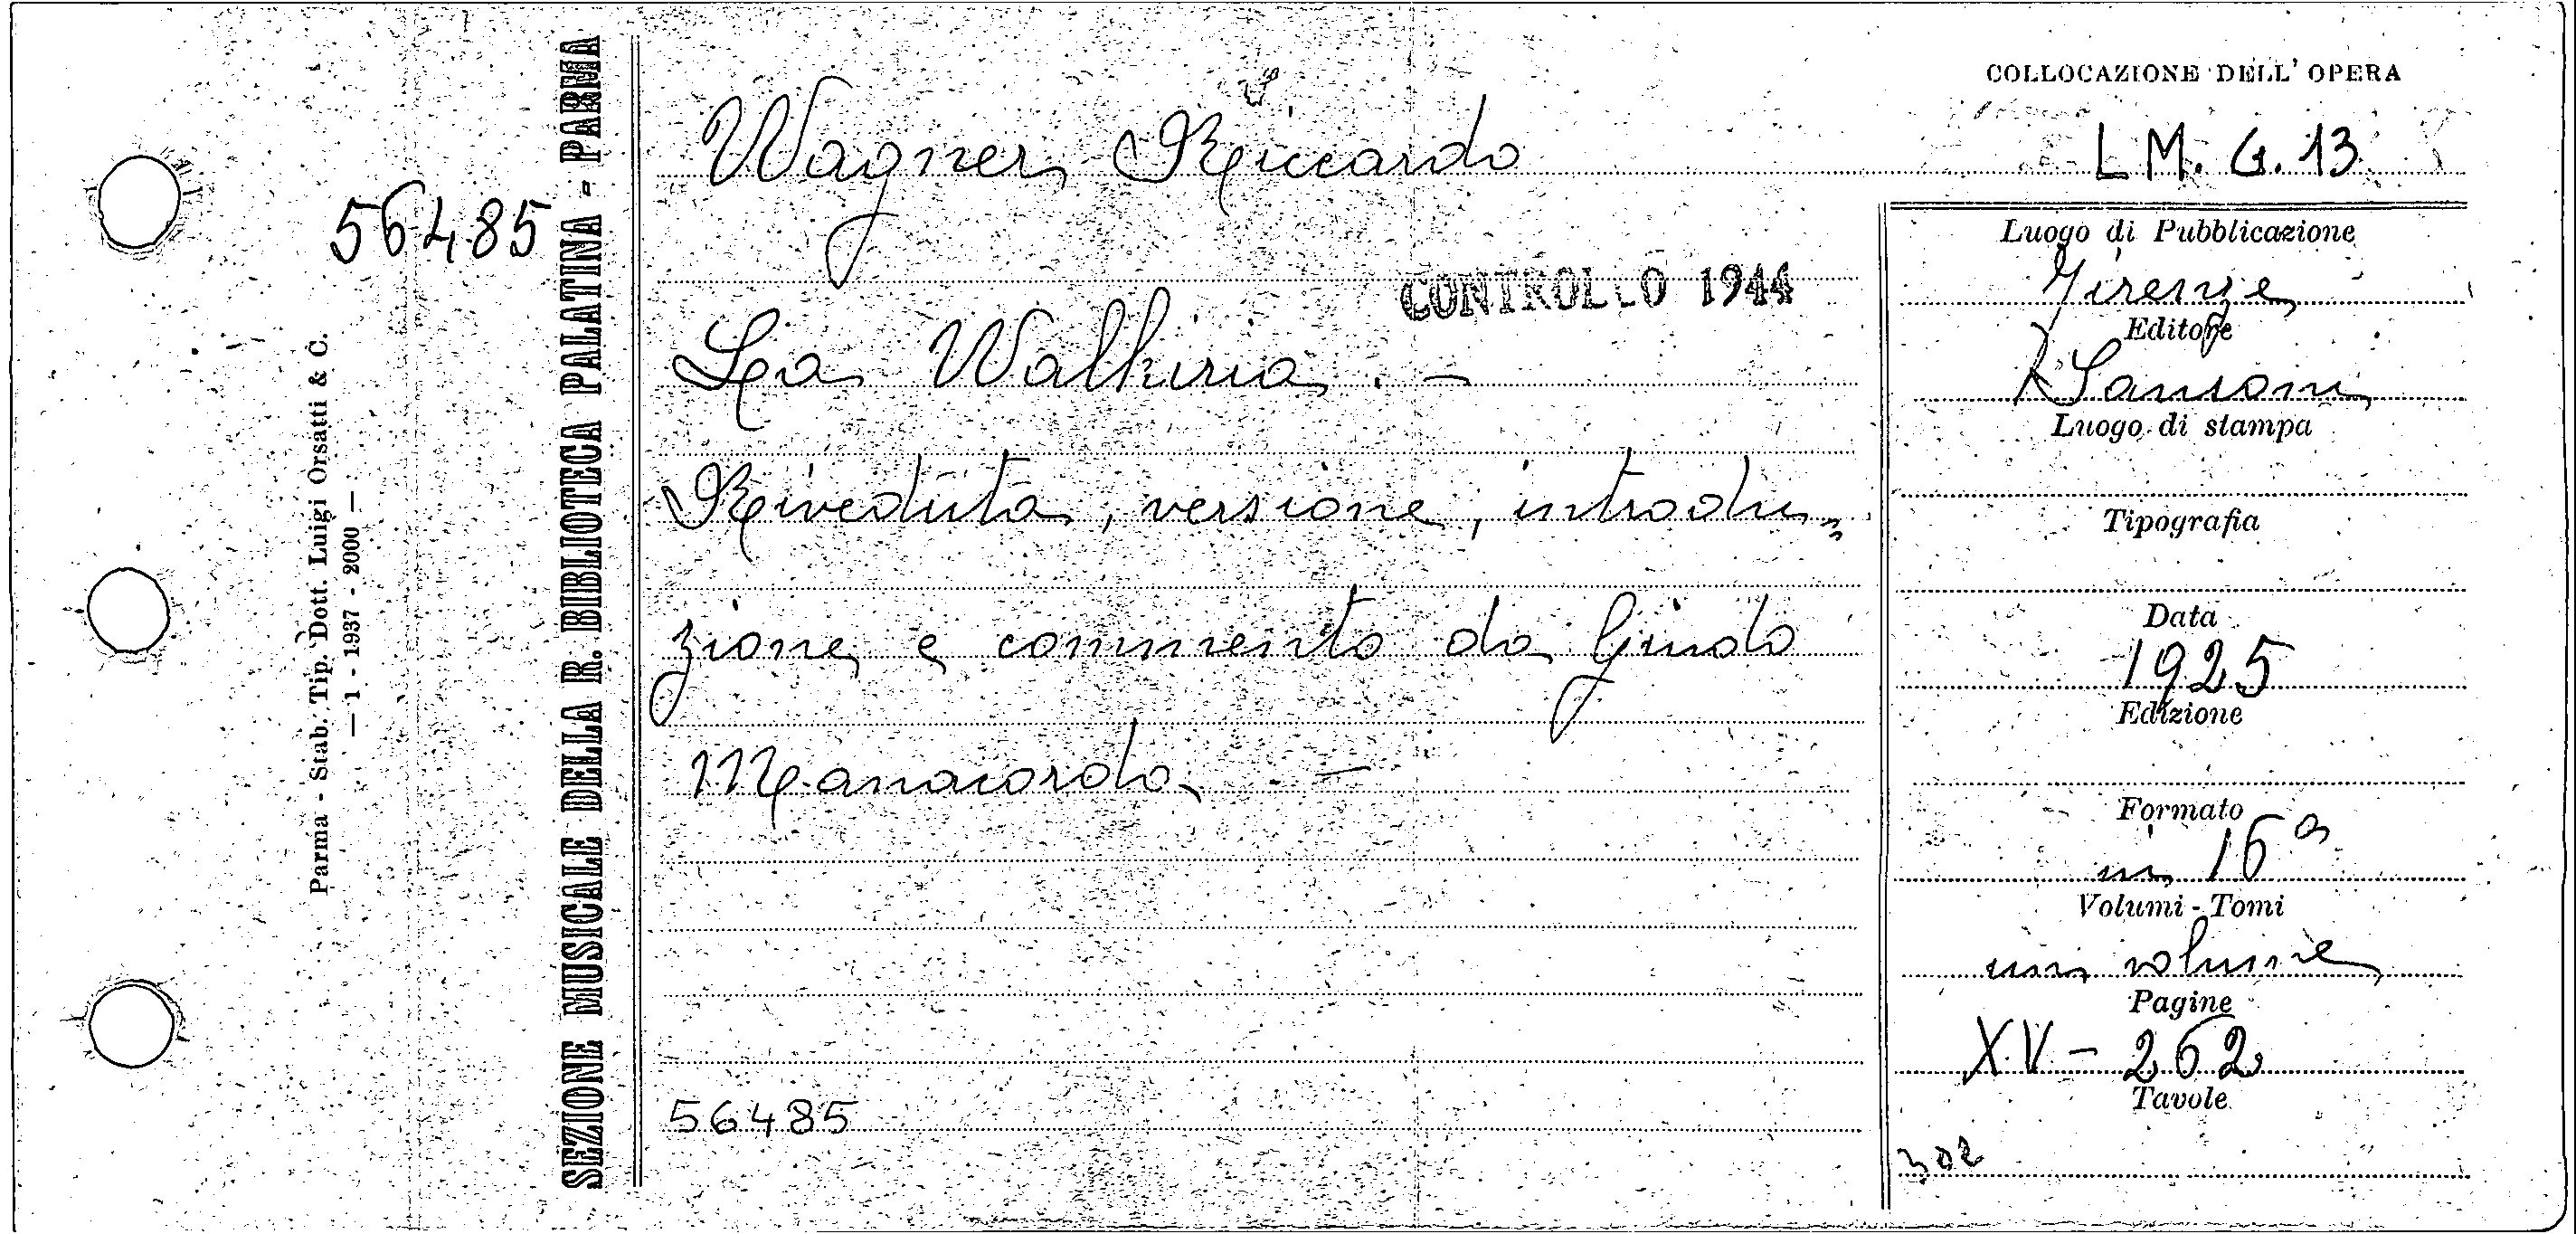 56485
Parma - Stab. Tip. Dott. Luigi Orsatti & C.
— 1 - 1937 - 2000 —
SEZIONE MUSICALE DELLA R. BIBLIOTECA PALATINA - PARMA
Wagner Riccardo
CONTROLLO 1944
La Walkiria . —
Riveduta, versione, introdu„
zione e commento da Guido
Manacorda . —
56485
COLLOCAZIONE DELL' OPERA
L M. G. 13
Luogo di Pubblicazione
Firenze
Editore
Sansoni
Luogo di stampa
Tipografia
Data
1925
Edizione
Formato
in 16°
Volumi - Tomi
un volume
Pagine
XV - 262
Tavole
302